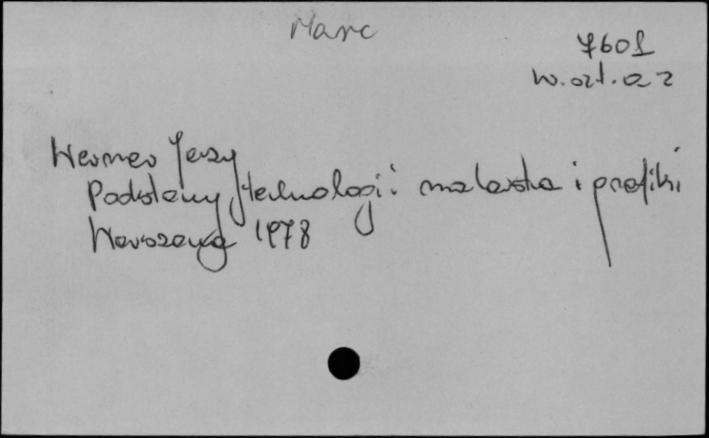 Marc
7601
W. szt. a 2
Werner Jerzy
Podstawy technologii malarstwa i grafiki
Warszawa 1978